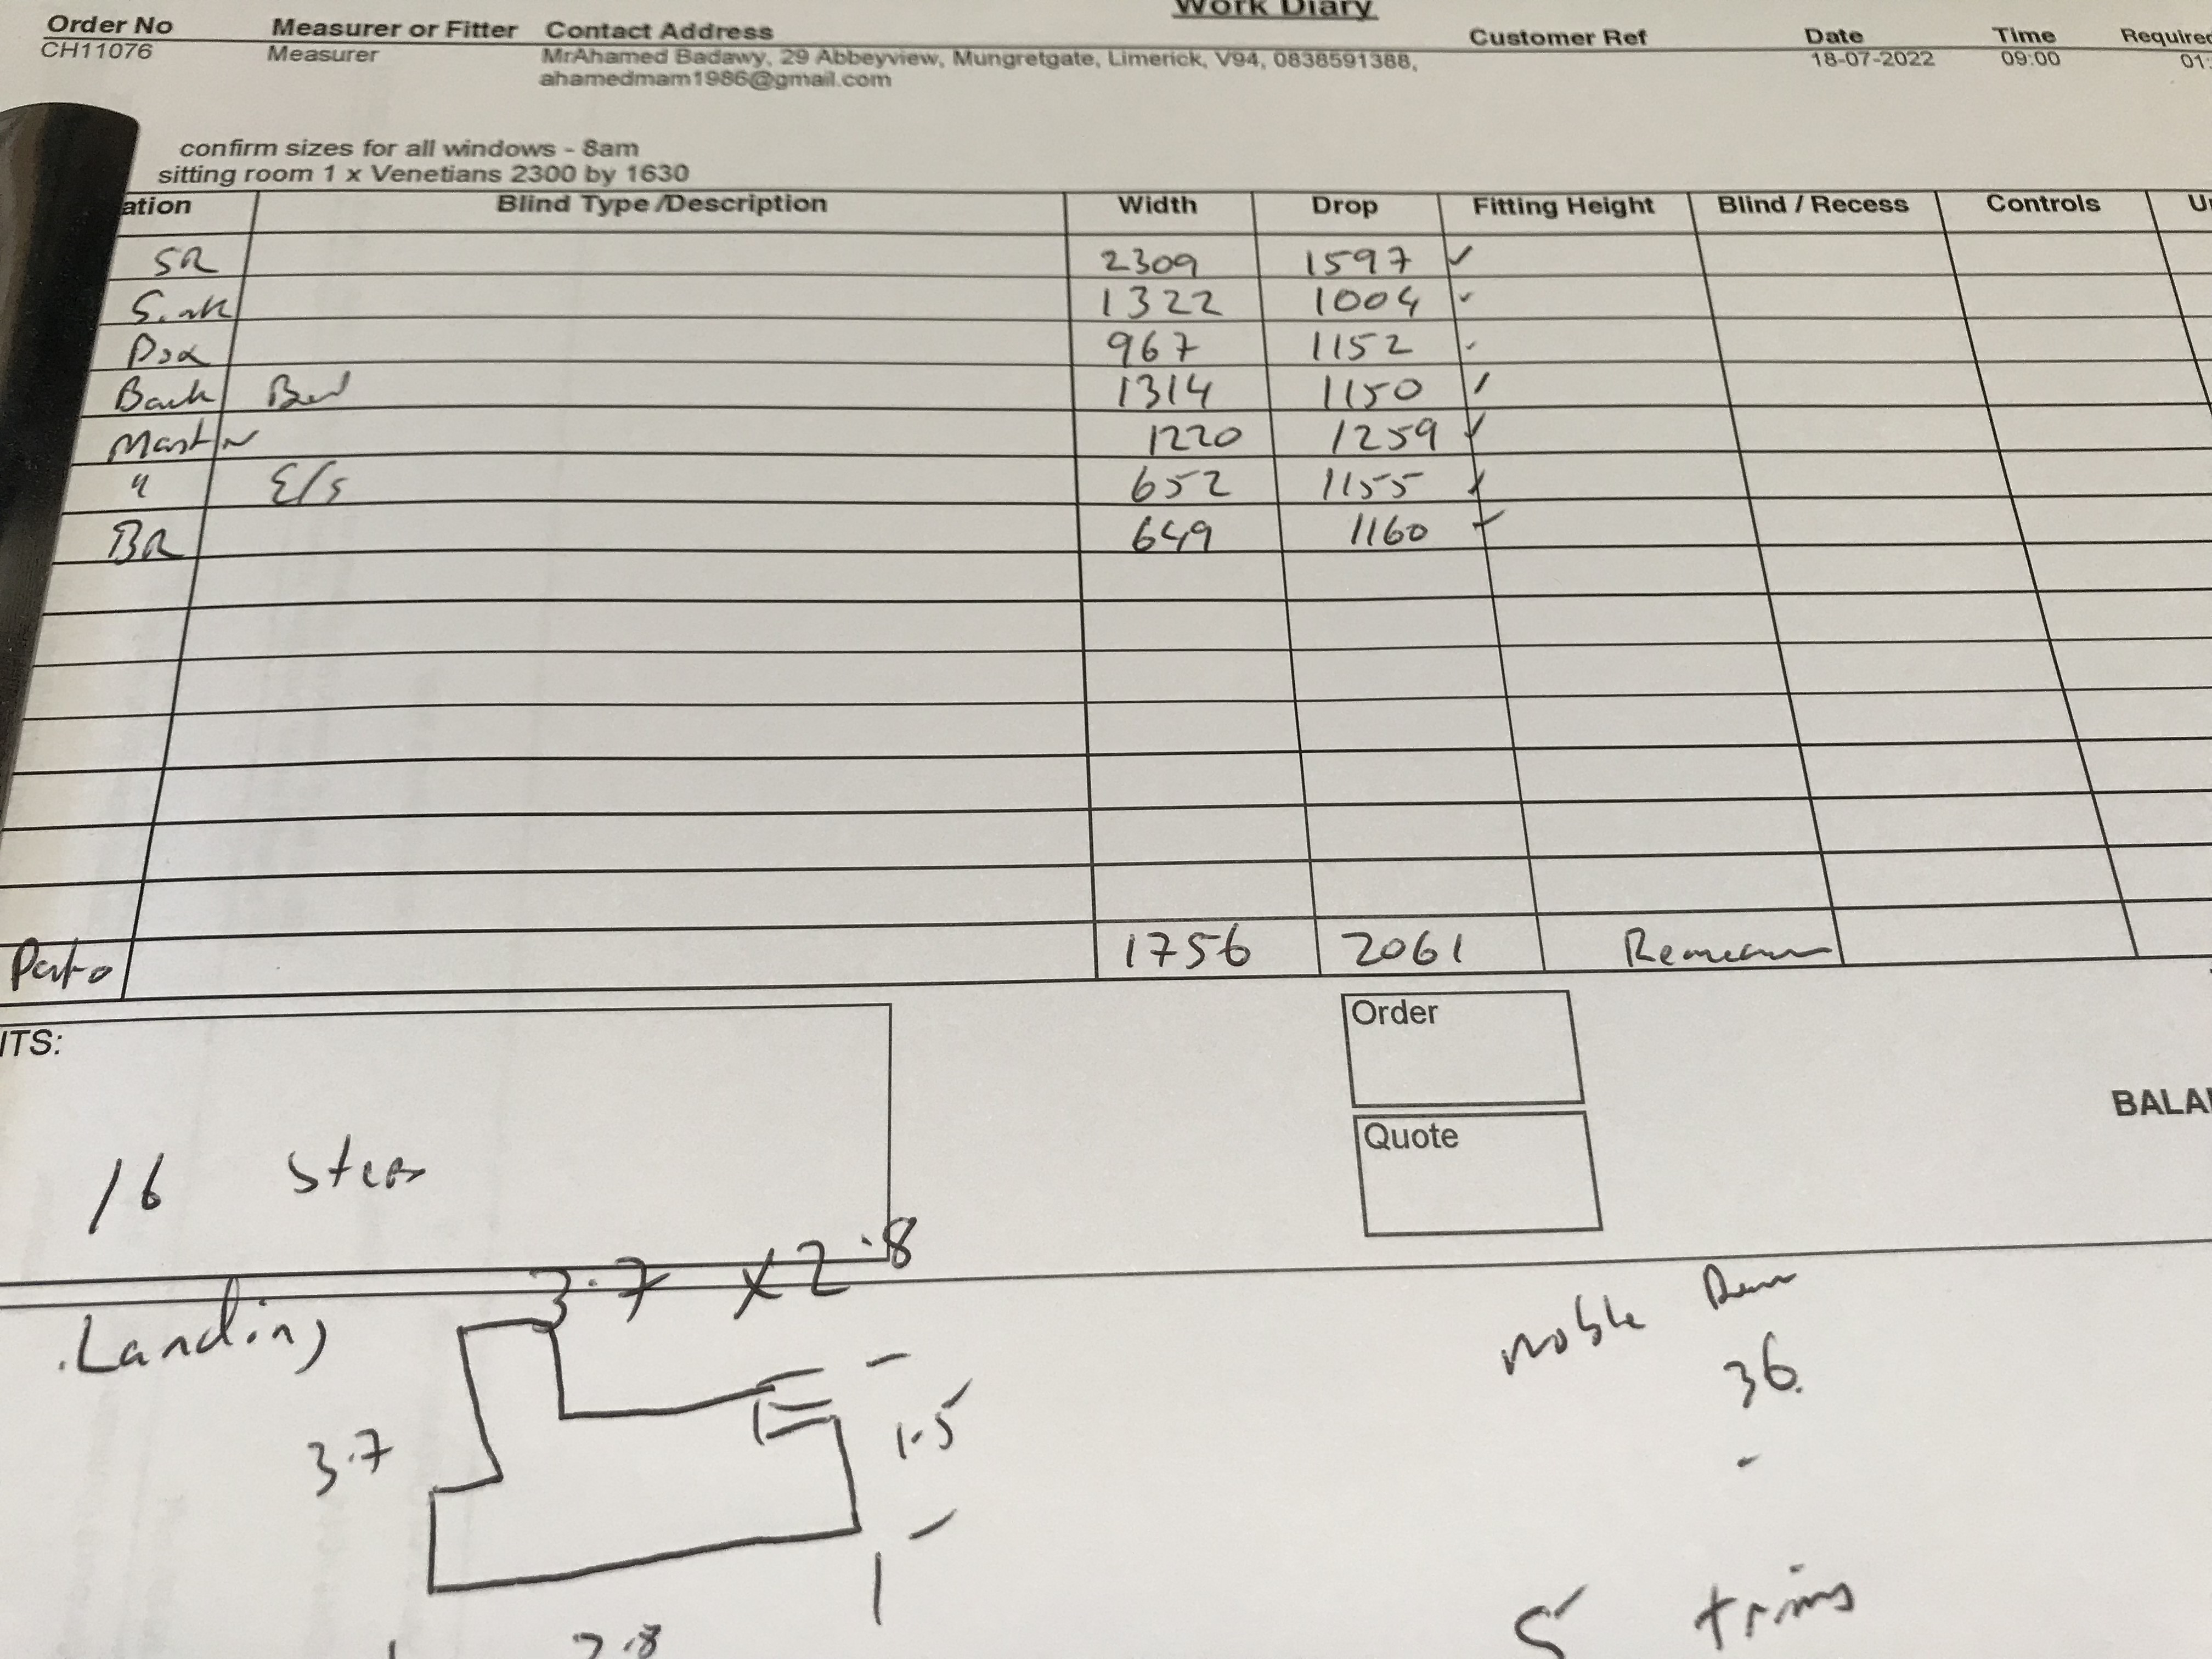 Work Diary
Order No Measurer or Fitter Contact Address Customer Ref Date Time Required
CH11076 Measurer MrAhamed Badawy, 29 Abbeyview, Mungretgate, Limerick, V94, 0838591388, 18-07-2022 09:00 01:
ahamedmam1986@gmail.com
confirm sizes for all windows - 8am
sitting room 1 x Venetians 2300 by 1630
ation Blind Type /Description Width Drop Fitting Height Blind / Recess Controls
SR 2309 1597 ✓
Sink 1322 1004 ✓
967 1152 ✓
Back Bed 1314 1150 ✓
Master 1220 1259 ✓
" E/S 652 1155 ✓
BR 649 1160 ✓
Patio 1756 2061
ITS:
Order
Quote
BALA
16 steps
3.7 x 2.8
Landing
3.7
1.5
2.8
noble
36.
5 trims